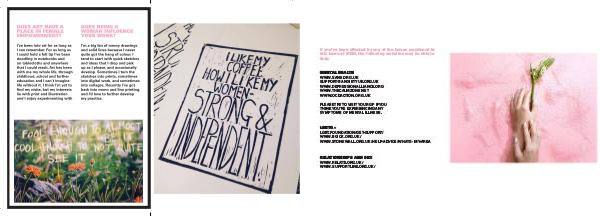 DOES ART HAVE A
PLACE IN FEMALE
EMPOWERMENT?
I've been into art for as long as
I can remember. For as long as
I could hold a felt tip I've been
doodling in notebooks and
on tablecloths and anywhere
that I could reach. Art has been
with me my whole life, through
childhood, school and further
education and I can't imagine
life without it. I think I'm yet to
find my niche, but my interests
lie with print and illustration
and I enjoy experimenting with
DOES BEING A
WOMAN INFLUENCE
YOUR WORK?
I'm a big fan of runny drawings
and solid lines because I never
quite got the hang of colour. I
tend to start with quick sketches
and ideas that I drop and pick
up as I please, and occasionally
develop. Sometimes I turn the
sketches into prints, sometimes
into digital work, and sometimes
into collages. Recently I've got
back into mono and lino printing
and I'd love to further develop
my practice.
FOOL ENOUGH TO ALMOST
COOL ENOUGH TO NOT QUITE
SEE IT
I LIKE MY
HOW I LIKE MY
MEN-
STRONG &
INDEPENDENT
If you've been affected by any of the issues mentioned in
help:
MENTAL HEALTH
WWW.MIND.ORG.UK
WWW.DEPRESSIONALLIANCE.ORG
WWW.THECALMZONE.NET
WWW.OCDACTION.ORG.UK
PLEASE TRY TO VISIT YOUR GP IF YOU
THINK YOU'RE EXPERIENCING ANY
SYMPTOMS OF MENTAL ILLNESS.
RELATIONSHIPS AND SEX
WWW.RELATE.ORG.UK/
WWW.SUPPORTLINE.ORG.UK/